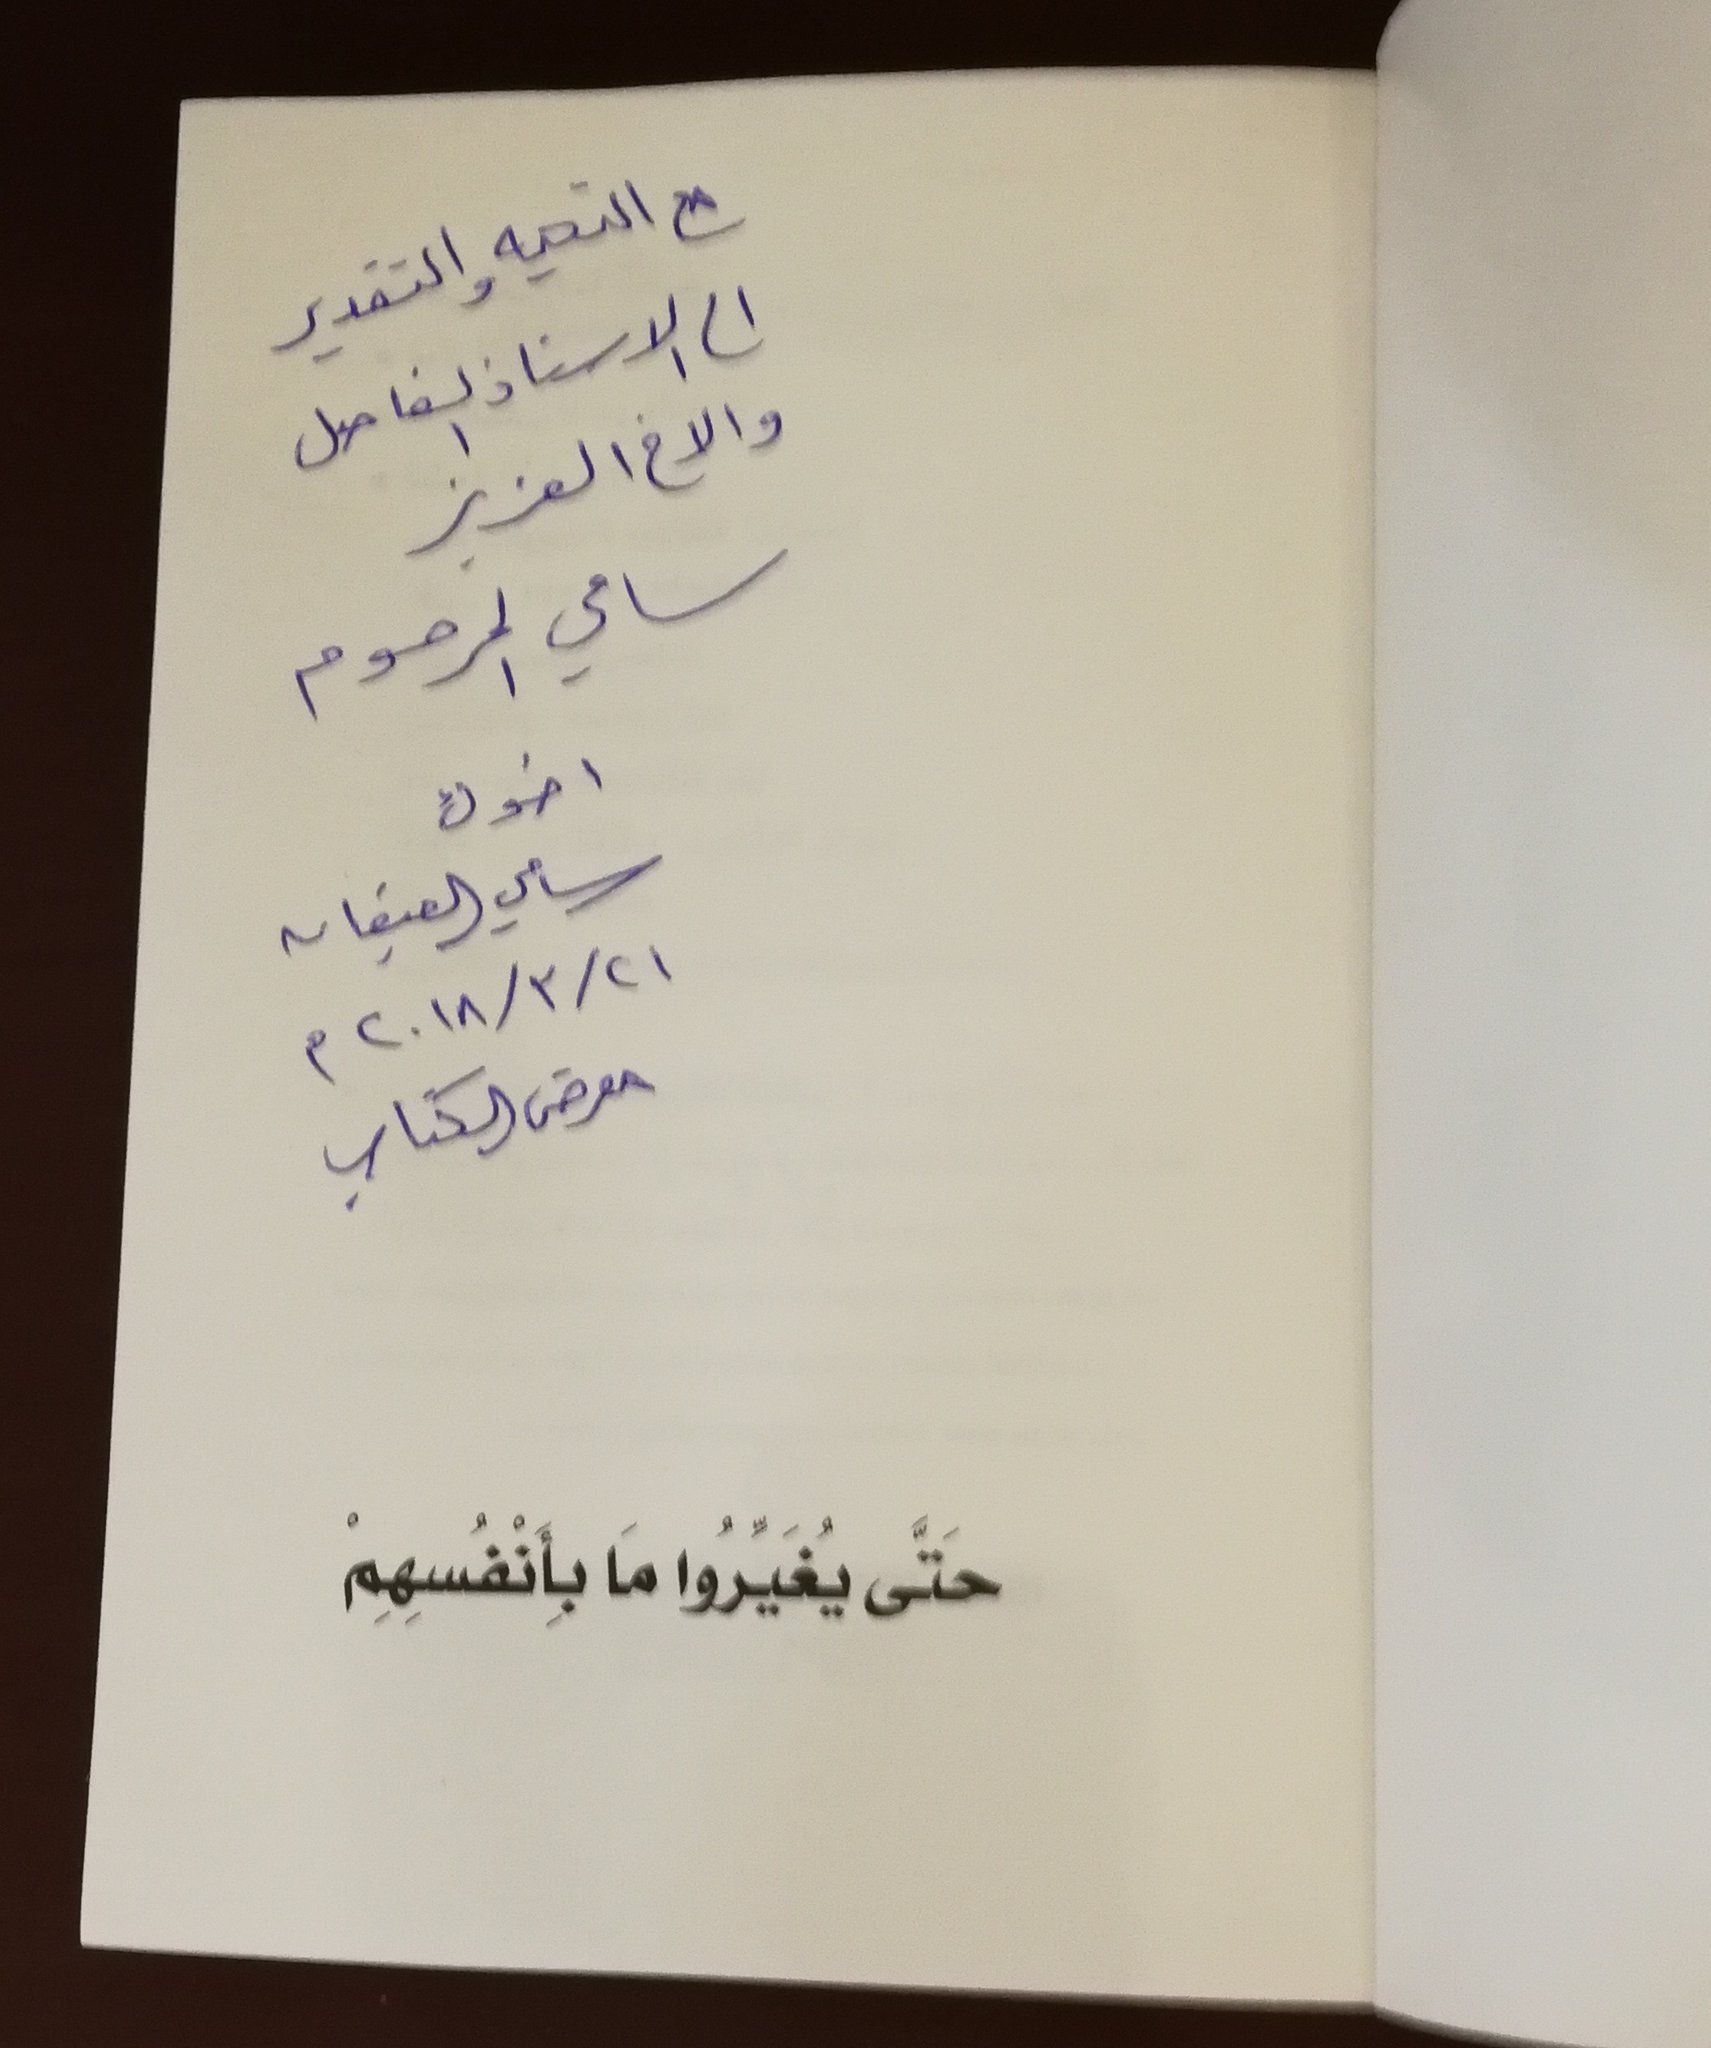 مع التحيه والتقدير
الى الاستاذ الفاضل
والاخ العزيز
سامي المرحوم
اخوك
سامي
٢١/٣/٢٠١٨ م
معرض الكتاب
حَتَّى يُغَيِّرُوا مَا بِأَنْفُسِهِمْ